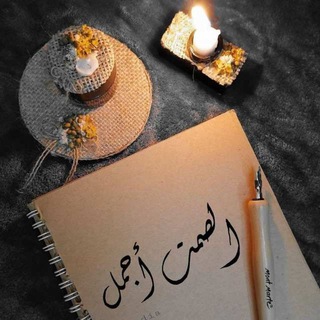 الصمت أجمل